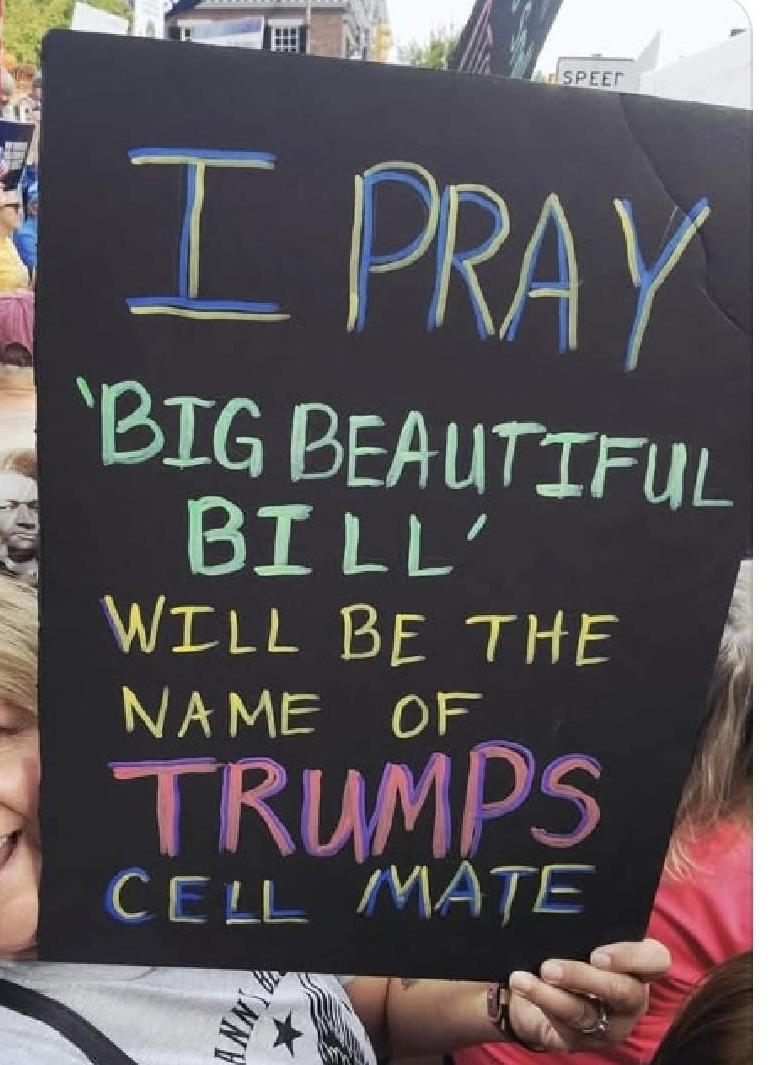 SPEED
I PRAY
'BIG BEAUTIFUL
BILL'
WILL BE THE
NAME OF
TRUMPS
CELL MATE